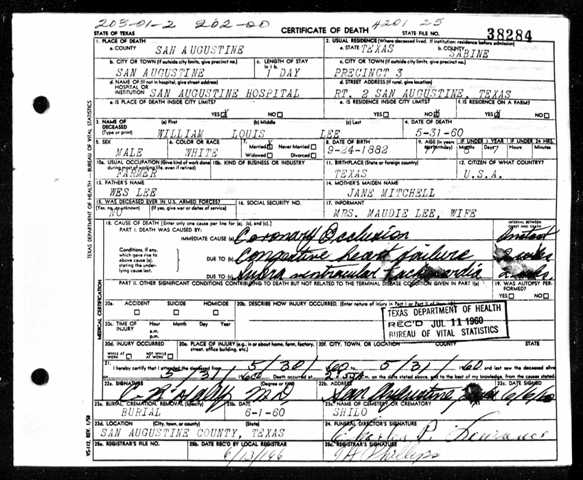 203-01-2 202-00 4201 25
STATE OF TEXAS CERTIFICATE OF DEATH STATE FILE NO. 38284
1. PLACE OF DEATH 2. USUAL RESIDENCE (Where deceased lived. If institution: residence before admission)
a. COUNTY SAN AUGUSTINE a. STATE TEXAS b. COUNTY SABINE
b. CITY OR TOWN (If outside city limits, give precinct no.) c. LENGTH OF STAY c. CITY OR TOWN (If outside city limits, give precinct no.)
SAN AUGUSTINE 1 DAY PRECINCT 3
d. NAME OF (If not in hospital, give street address) d. STREET ADDRESS (If rural, give location)
HOSPITAL OR INSTITUTION SAN AUGUSTINE HOSPITAL RT. 2 SAN AUGUSTINE, TEXAS
e. IS PLACE OF DEATH INSIDE CITY LIMITS? e. IS RESIDENCE INSIDE CITY LIMITS? f. IS RESIDENCE ON A FARM?
YES NO YES NO YES NO
3. NAME OF DECEASED (Type or print) (a) First (b) Middle (c) Last 4. DATE OF DEATH
WILLIAM LOUIS LEE 5-31-60
5. SEX 6. COLOR OR RACE 7. Married Never Married 8. DATE OF BIRTH 9. AGE IF UNDER 1 YEAR IF UNDER 24 HRS.
MALE WHITE Widowed Divorced 9-24-1882 77
10a. USUAL OCCUPATION (Give kind of work done during most of working life, even if retired) 10b. KIND OF BUSINESS OR INDUSTRY 11. BIRTHPLACE (State or foreign country) 12. CITIZEN OF WHAT COUNTRY?
FARMER TEXAS U.S.A.
13. FATHER'S NAME 14. MOTHER'S MAIDEN NAME
WES LEE JANE MITCHELL
15. WAS DECEASED EVER IN U.S. ARMED FORCES? 16. SOCIAL SECURITY NO. 17. INFORMANT
(Yes, no, or unknown) (If yes, give war or dates of service)
NO MRS. MAUDIE LEE, WIFE
18. CAUSE OF DEATH (Enter only one cause per line for (a), (b), and (c).) INTERVAL BETWEEN
PART I. DEATH WAS CAUSED BY:
IMMEDIATE CAUSE (a) Coronary Occlusion Instant
Conditions, if any, which gave rise to above cause (a), stating the underlying cause last.
DUE TO (b) Congestive heart failure
DUE TO (c) tachycardia
PART II. OTHER SIGNIFICANT CONDITIONS CONTRIBUTING TO DEATH BUT NOT RELATED TO THE TERMINAL DISEASE CONDITION GIVEN IN PART I(a) 19. WAS AUTOPSY PERFORMED?
YES NO
20a. ACCIDENT SUICIDE HOMICIDE 20b. DESCRIBE HOW INJURY OCCURRED. (Enter nature of injury in Part I or Part II of item 18.)
TEXAS DEPARTMENT OF HEALTH
REC'D JUL 11 1960
BUREAU OF VITAL STATISTICS
20c. TIME OF INJURY Hour Month Day Year
a.m.
p.m.
20d. INJURY OCCURRED 20e. PLACE OF INJURY (e.g., in or about home, farm, factory, street, office building, etc.) 20f. CITY, TOWN, OR LOCATION COUNTY STATE
WHILE AT WORK NOT WHILE AT WORK
21. I hereby certify that I attended the deceased from 5/30/60 5/31/60 and last saw the deceased alive
5/31/60 Death occurred at
22a. SIGNATURE (Degree or title) 22b. ADDRESS 22c. DATE SIGNED
M.D. San Augustine, 6/6/60
23a. BURIAL, CREMATION, REMOVAL (Specify) 23b. DATE 23c. NAME OF CEMETERY OR CREMATORY
BURIAL 6-1-60 SHILO
23d. LOCATION (City, town, or county) (State) 24. FUNERAL DIRECTOR'S SIGNATURE
SAN AUGUSTINE COUNTY, TEXAS
25a. REGISTRAR'S FILE NO. 25b. DATE REC'D BY LOCAL REGISTRAR 25c. REGISTRAR'S SIGNATURE
TEXAS DEPARTMENT OF HEALTH - BUREAU OF VITAL STATISTICS
MEDICAL CERTIFICATION